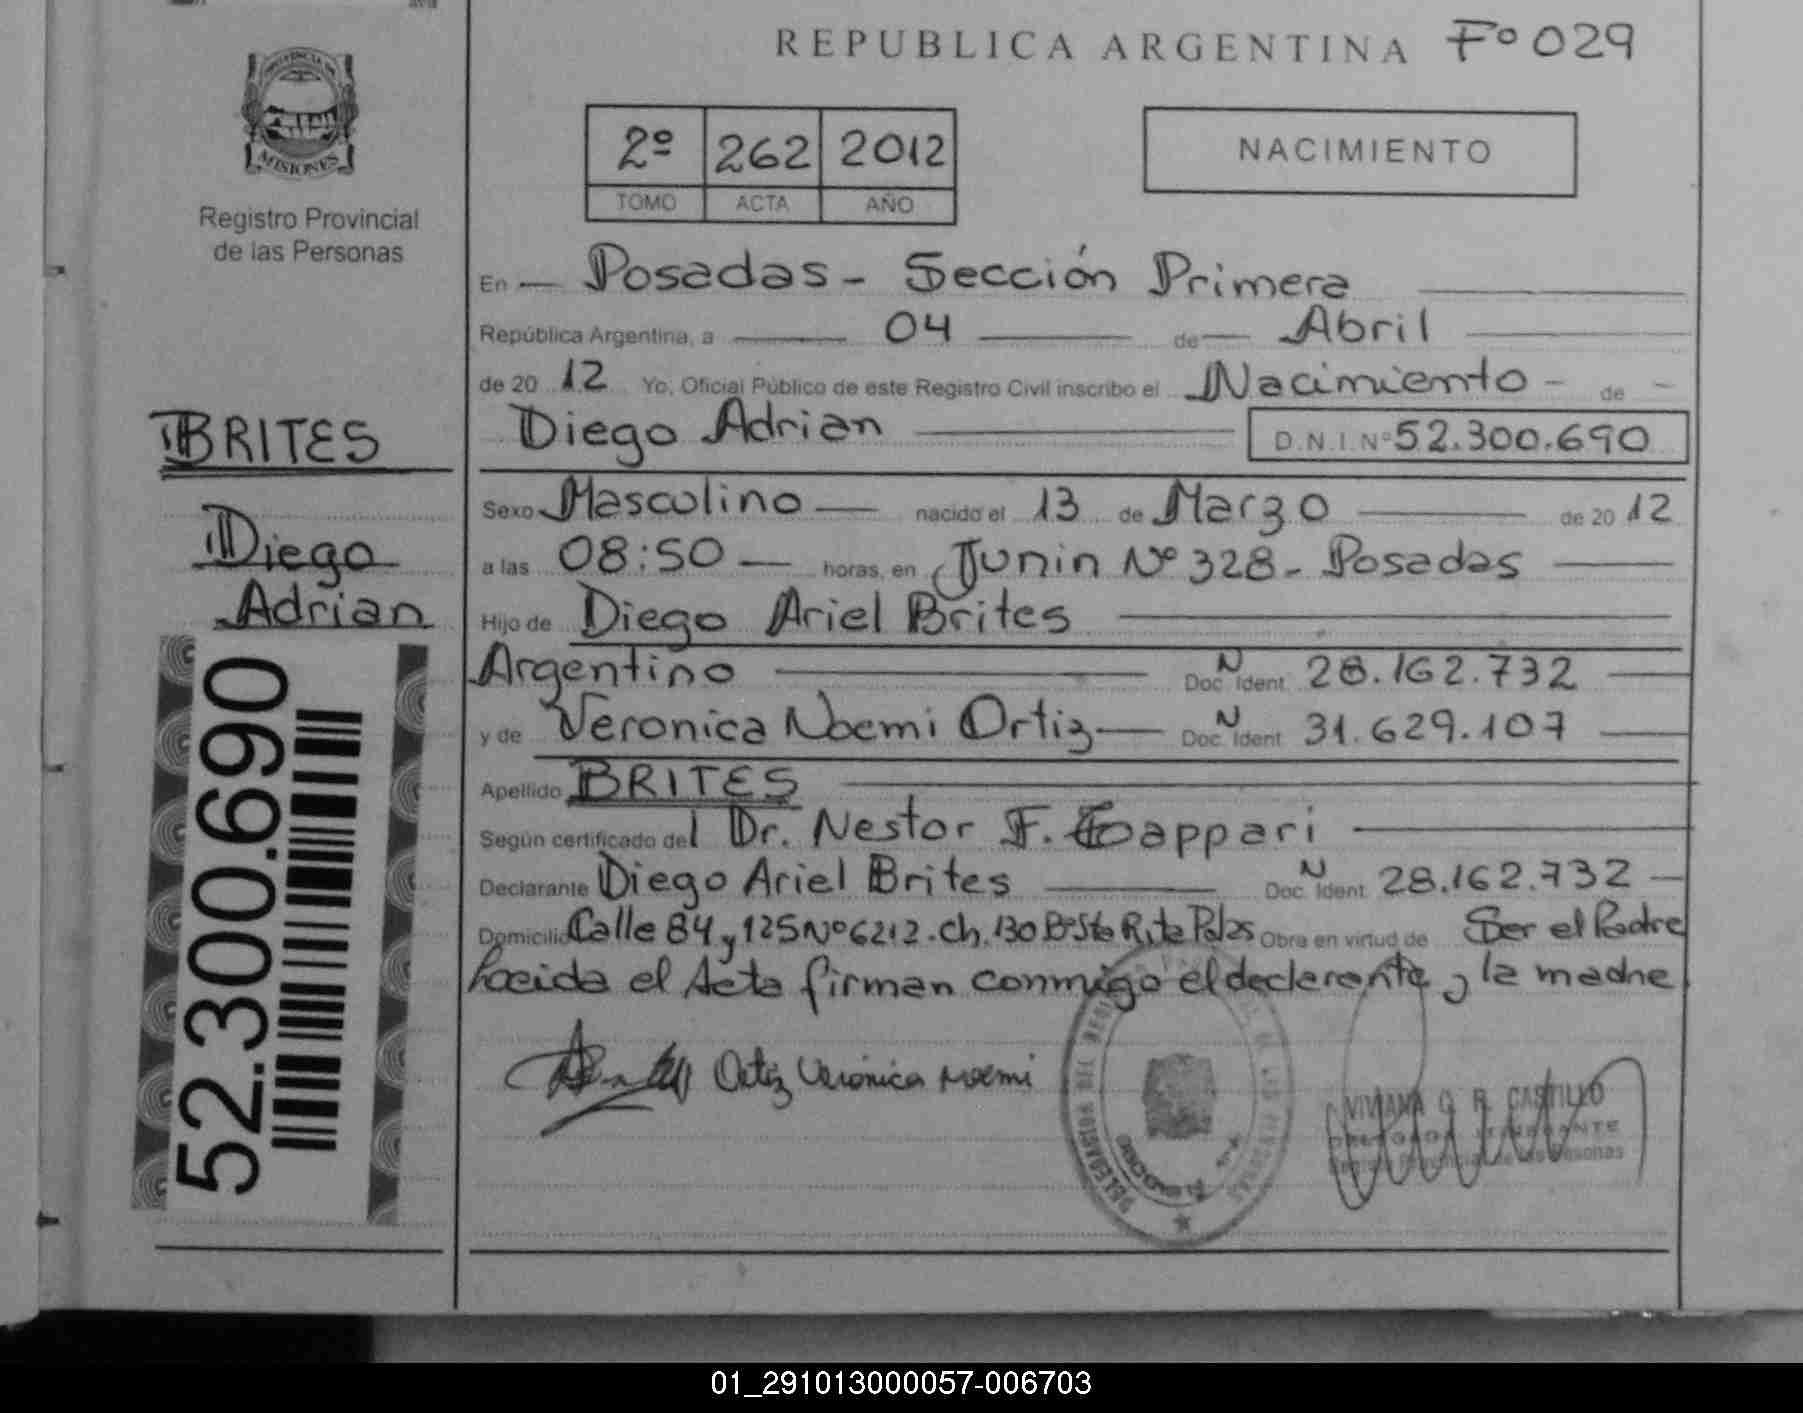 REPUBLICA ARGENTINA Fº 029
PROVINCIA DE
MISIONES
Registro Provincial
de las Personas
2º 262 2012
TOMO ACTA AÑO
NACIMIENTO
En — Posadas - Sección Primera
República Argentina, a 04 de Abril
de 20 12 Yo, Oficial Público de este Registro Civil inscribo el Nacimiento - de -
Diego Adrian D.N.I. Nº 52.300.690
BRITES
Diego
Adrian
52.300.690
Sexo Masculino — nacido el 13 de Marzo de 20 12
a las 08:50 — horas, en Junin Nº 328 - Posadas
Hijo de Diego Ariel Brites
Argentino Doc. Ident. N 28.162.732
y de Veronica Noemi Ortiz — Doc. Ident. N 31.629.107
Apellido BRITES
Según certificado del Dr. Nestor F.
Declarante Diego Ariel Brites Doc. Ident. N 28.162.732
Domicilio Calle 84 y 125 Nº 6212. Ch. 130 Bº Sta Rita Pdas Obra en virtud de Ser el Padre
el Acta firman conmigo el declarante y la madre
Ortiz Veronica Noemi
VIVIANA G. R. CASTILLO
DELEGADA ITINERANTE
Registro Provincial de las Personas
01_291013000057-006703